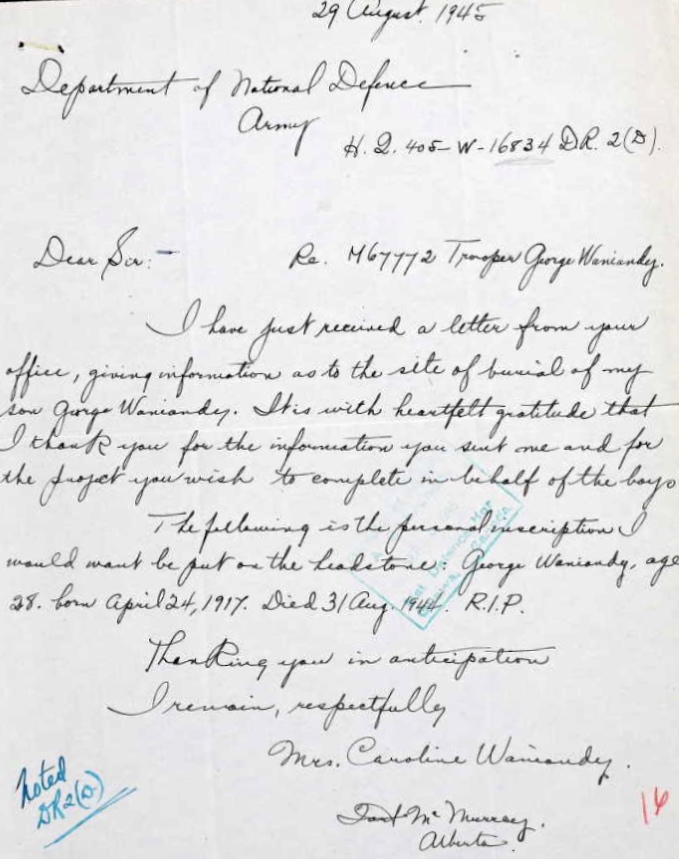 29 August 1945
Department of National Defence
Army
H. Q. 405-W-16834 DR. 2(D).
Dear Sir:- Re. M67772 Trooper George Waniandy.
I have just received a letter from your
office, giving information as to the site of burial of my
son George Waniandy. It is with heartfelt gratitude that
I thank you for the information you sent me and for
the project you wish to complete in behalf of the boys
The following is the personal inscription I
would want be put on the headstone: George Waniandy, age
28. born April 24, 1917. Died 31 Aug. 1944. R.I.P.
Thanking you in anticipation
I remain, respectfully
Mrs. Caroline Waniandy.
Fort Mc Murray.
Alberta.
noted
DR2(D)
16